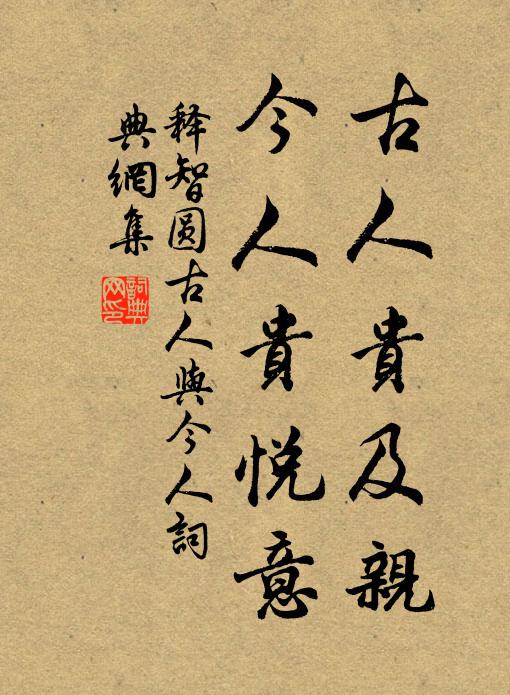 古人貴及親
今人貴悅意
釋智圓古人與今人詞
典網集
詞典
网印